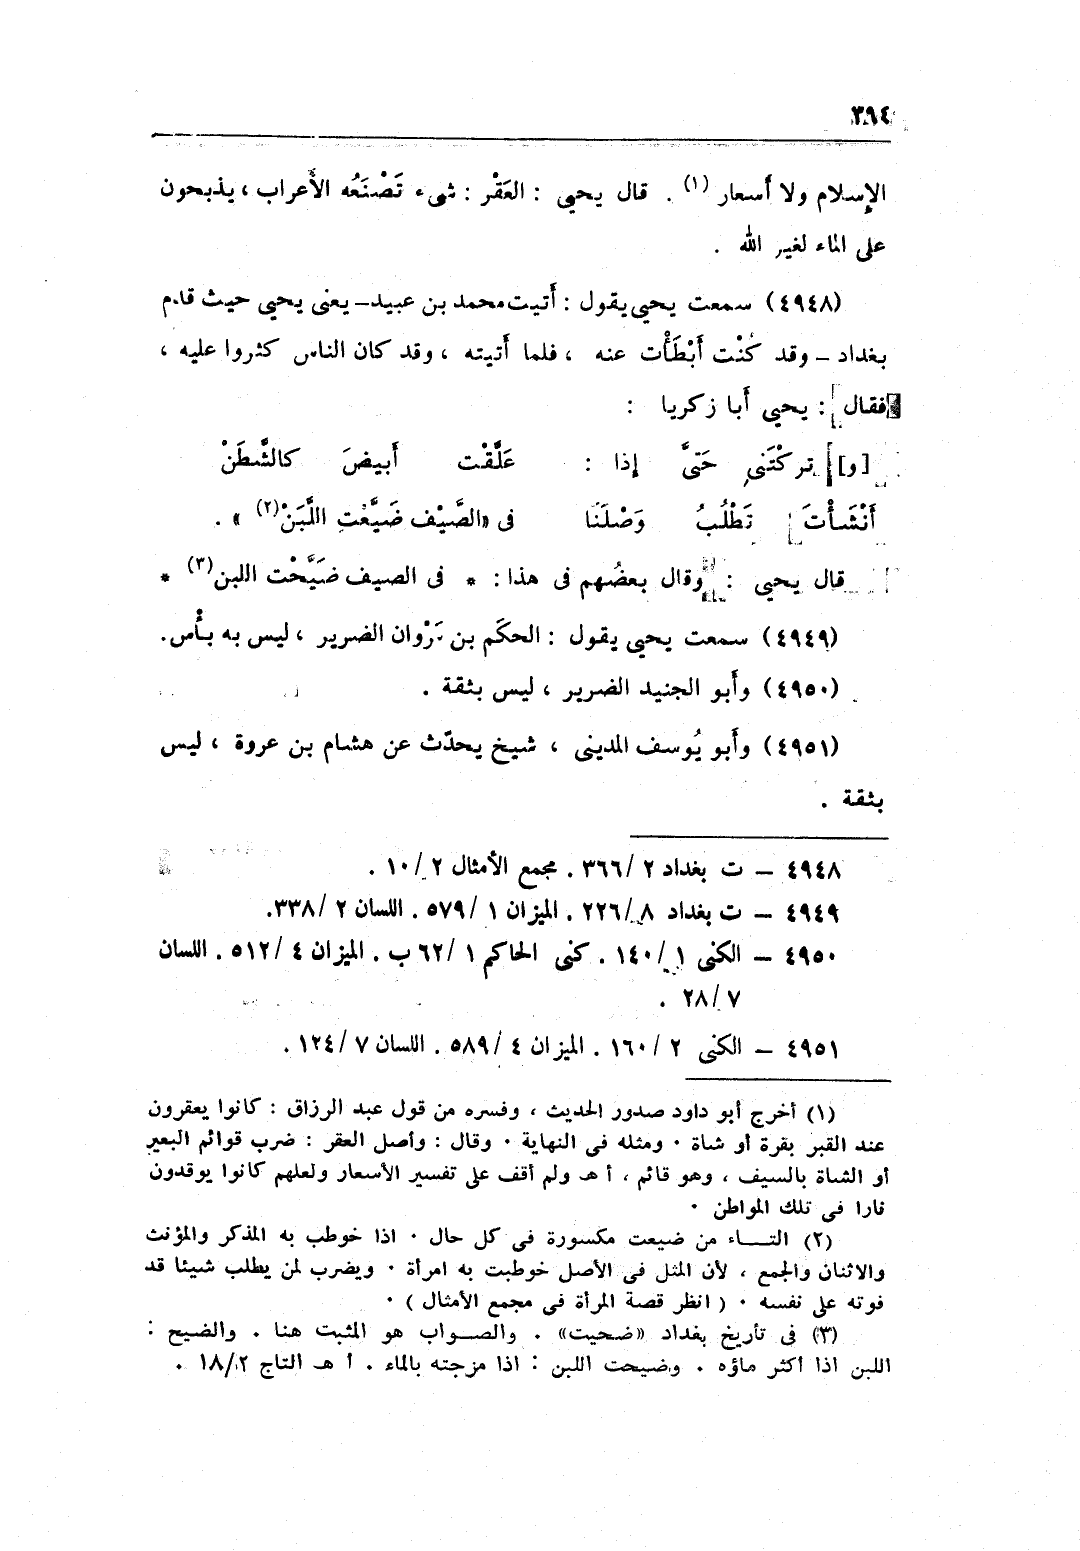 ٣٩٤
الإسلام ولا أسعار (١) . قال يحيى : العَقْر : شىء تَصْنَعُه الأَعراب ، يذبحون
على الماء لغير الله .
(٤٩٤٨) سمعت يحيى يقول : أَتيت محمد بن عبيد – يعنى يحيى حيث قدم
بغداد – وقد كُنْت أَبْطَأْت عنه ، فلما أَتيته ، وقد كان الناس كثروا عليه ،
فقال : يحيى أَبا زكريا :
[و] تركْتَنِى حَتىَّ إذا : عَلَّقْت أَبيضَ كالشَّطَنْ
أَنْشَأْتَ تَطْلُبُ وَصْلَنَا فى «الصَّيْف ضَيَّعْتِ اللَّبَنْ(٢) » .
قال يحيى : وقال بعضُهم فى هذا : * فى الصيف ضَيَّحْت اللبن(٣) *
(٤٩٤٩) سمعت يحيى يقول : الحكَم بن مَرْوان الضرير ، ليس به بأْس.
(٤٩٥٠) وأَبو الجنيد الضرير ، ليس بثقة .
(٤٩٥١) وأَبو يُوسف المدينى ، شيخ يحدّث عن هشام بن عروة ، ليس
بثقة .
٤٩٤٨ – ت بغداد ٢ /٣٦٦ . مجمع الأمثال ٢ /١٠ .
٤٩٤٩ – ت بغداد ٨ /٢٢٦ . الميزان ١ /٥٧٩ . اللسان ٢ /٣٣٨.
٤٩٥٠ – الكنى ١ /١٤٠ . كنى الحاكم ١ /٦٢ ب . الميزان ٤ /٥١٢ . اللسان
٧ /٢٨ .
٤٩٥١ – الكنى ٢ /١٦٠ . الميزان ٤ /٥٨٩ . اللسان ٧ /١٢٤ .
(١) أخرج أبو داود صدور الحديث ، وفسره من قول عبد الرزاق : كانوا يعقرون
عند القبر بقرة أو شاة ٠ ومثله فى النهاية ٠ وقال : وأصل العقر : ضرب قوائم البعير
أو الشاة بالسيف ، وهو قائم ، أ هـ ولم أقف على تفسير الأسعار ولعلهم كانوا يوقدون
نارا فى تلك المواطن ٠
(٢) التـــاء من ضيعت مكسورة فى كل حال ٠ اذا خوطب به المذكر والمؤنث
والاثنان والجمع ، لأن المثل فى الأصل خوطبت به امرأة ٠ ويضرب لمن يطلب شيئا قد
فوته على نفسه ٠ ( انظر قصة المرأة فى مجمع الأمثال ) ٠
(٣) فى تأريخ بغداد «ضحيت» . والصـواب هو المثبت هنا . والضيح :
اللبن اذا اكثر ماؤه . وضيحت اللبن : اذا مزجته بالماء . أ هـ التاج ٢ /١٨ .